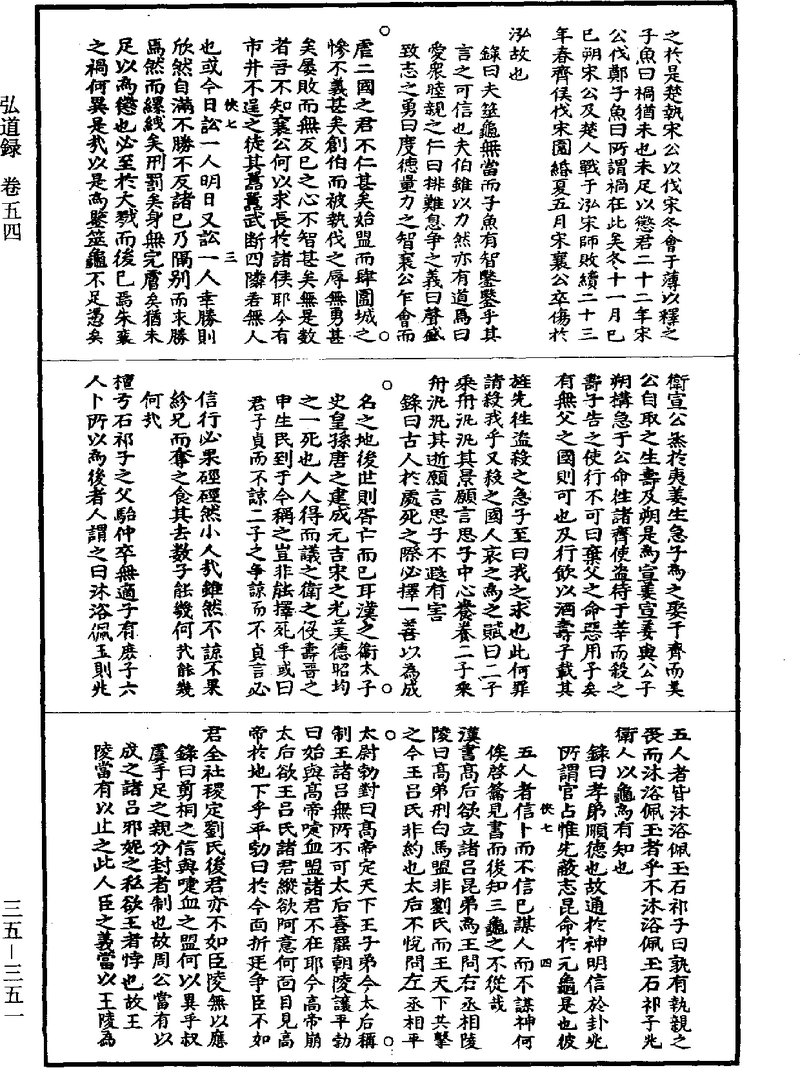 弘道録　卷五四
三五—三五一
之於是楚執宋公以伐宋冬會于薄以釋之
子魚曰禍猶未也未足以懲君二十二年宋
公伐鄭子魚曰所謂禍在此矣冬十一月己
巳朔宋公及楚人戰于泓宋師敗績二十三
年春齊侯伐宋圍緡夏五月宋襄公卒傷於
泓故也
錄曰夫筮龜無當而子魚有智鑒鑒乎其
言之可信也夫伯雖以力然亦有道焉曰
愛衆睦親之仁曰排難息争之義曰聲盛
致志之勇曰度德量力之智襄公乍會而
虐二國之君不仁甚矣始盟而肆圍城之
慘不義甚矣創伯而被執伐之辱無勇甚
矣屢敗而無反已之心不智甚矣無是數
者吾不知襄公何以求長於諸侯耶今有
市井不逞之徒其嚚嚚武断四隣若無人
俠七　三
也或今日訟一人明日又訟一人幸勝則
欣然自滿不勝不反諸已乃隔别而求勝
焉然而縲綫矣刑罰矣身無完膚矣猶未
足以為懲也必至於大戮而後已焉朱襄
之禍何異是哉以是為鑒筮龜不足憑矣
衛宣公烝於夷姜生急子為之娶于齊而美
公自取之生壽及朔是為宣姜宣姜與公子
朔搆急子公命徃諸齊使盗待于莘而殺之
壽子告之使行不可曰棄父之命惡用子矣
有無父之國則可也及行飲以酒壽子載其
旌先徃盗殺之急子至曰我之求也此何罪
請殺我乎又殺之國人哀之為之賦曰二子
乘舟汎汎其景願言思子中心養養二子乘
舟汎汎其逝願言思子不遐有害
錄曰古人於處死之際必擇一善以為成
名之地後世則胥亡而已耳漢之衞太子
史皇孫唐之建成元吉宋之光美德昭均
之一死也人人得而議之衛之伋壽晉之
申生民到于今稱之豈非能擇死乎或曰
君子貞而不諒二子之争諒而不貞言必
信行必果硜硜然小人哉雖然不諒不果
紾兄而奪之食其去数子能幾何哉能幾
何哉
檀弓石祁子之父駘仲卒無適子有庶子六
人卜所以為後者人謂之曰沐浴佩玉則兆
五人者皆沐浴佩玉石祁子曰孰有執親之
喪而沐浴佩玉者乎不沐浴佩玉石祁子兆
衛人以龜為有知也
錄曰孝弟順德也故通於神明信於卦兆
所謂官占惟先蔽志昆命於元龜是也彼
俠七　四
五人者信卜而不信已謀人而不謀神何
俟啓籥見書而後知三龜之不從哉
漢書高后欲立諸吕昆弟為王問右丞相陵
陵曰高弟刑白馬盟非劉氏而王天下共擊
之今王吕氏非約也太后不悅問左丞相平
太尉勃對曰高帝定天下王子弟今太后稱
制王諸吕無所不可太后喜罷朝陵讓平勃
曰始與高帝㗖血盟諸君不在耶今高帝崩
太后欲王吕氏諸君縱欲阿意何面目見高
帝於地下乎平勃曰於今面折廷争臣不如
君全社稷定劉氏後君亦不如臣陵無以應
錄曰剪桐之信與㗖血之盟何以異乎叔
虞手足之親分封者制也故周公當有以
成之諸吕邪妮之私欲王者悖也故王
陵當有以止之此人臣之義當以王陵為